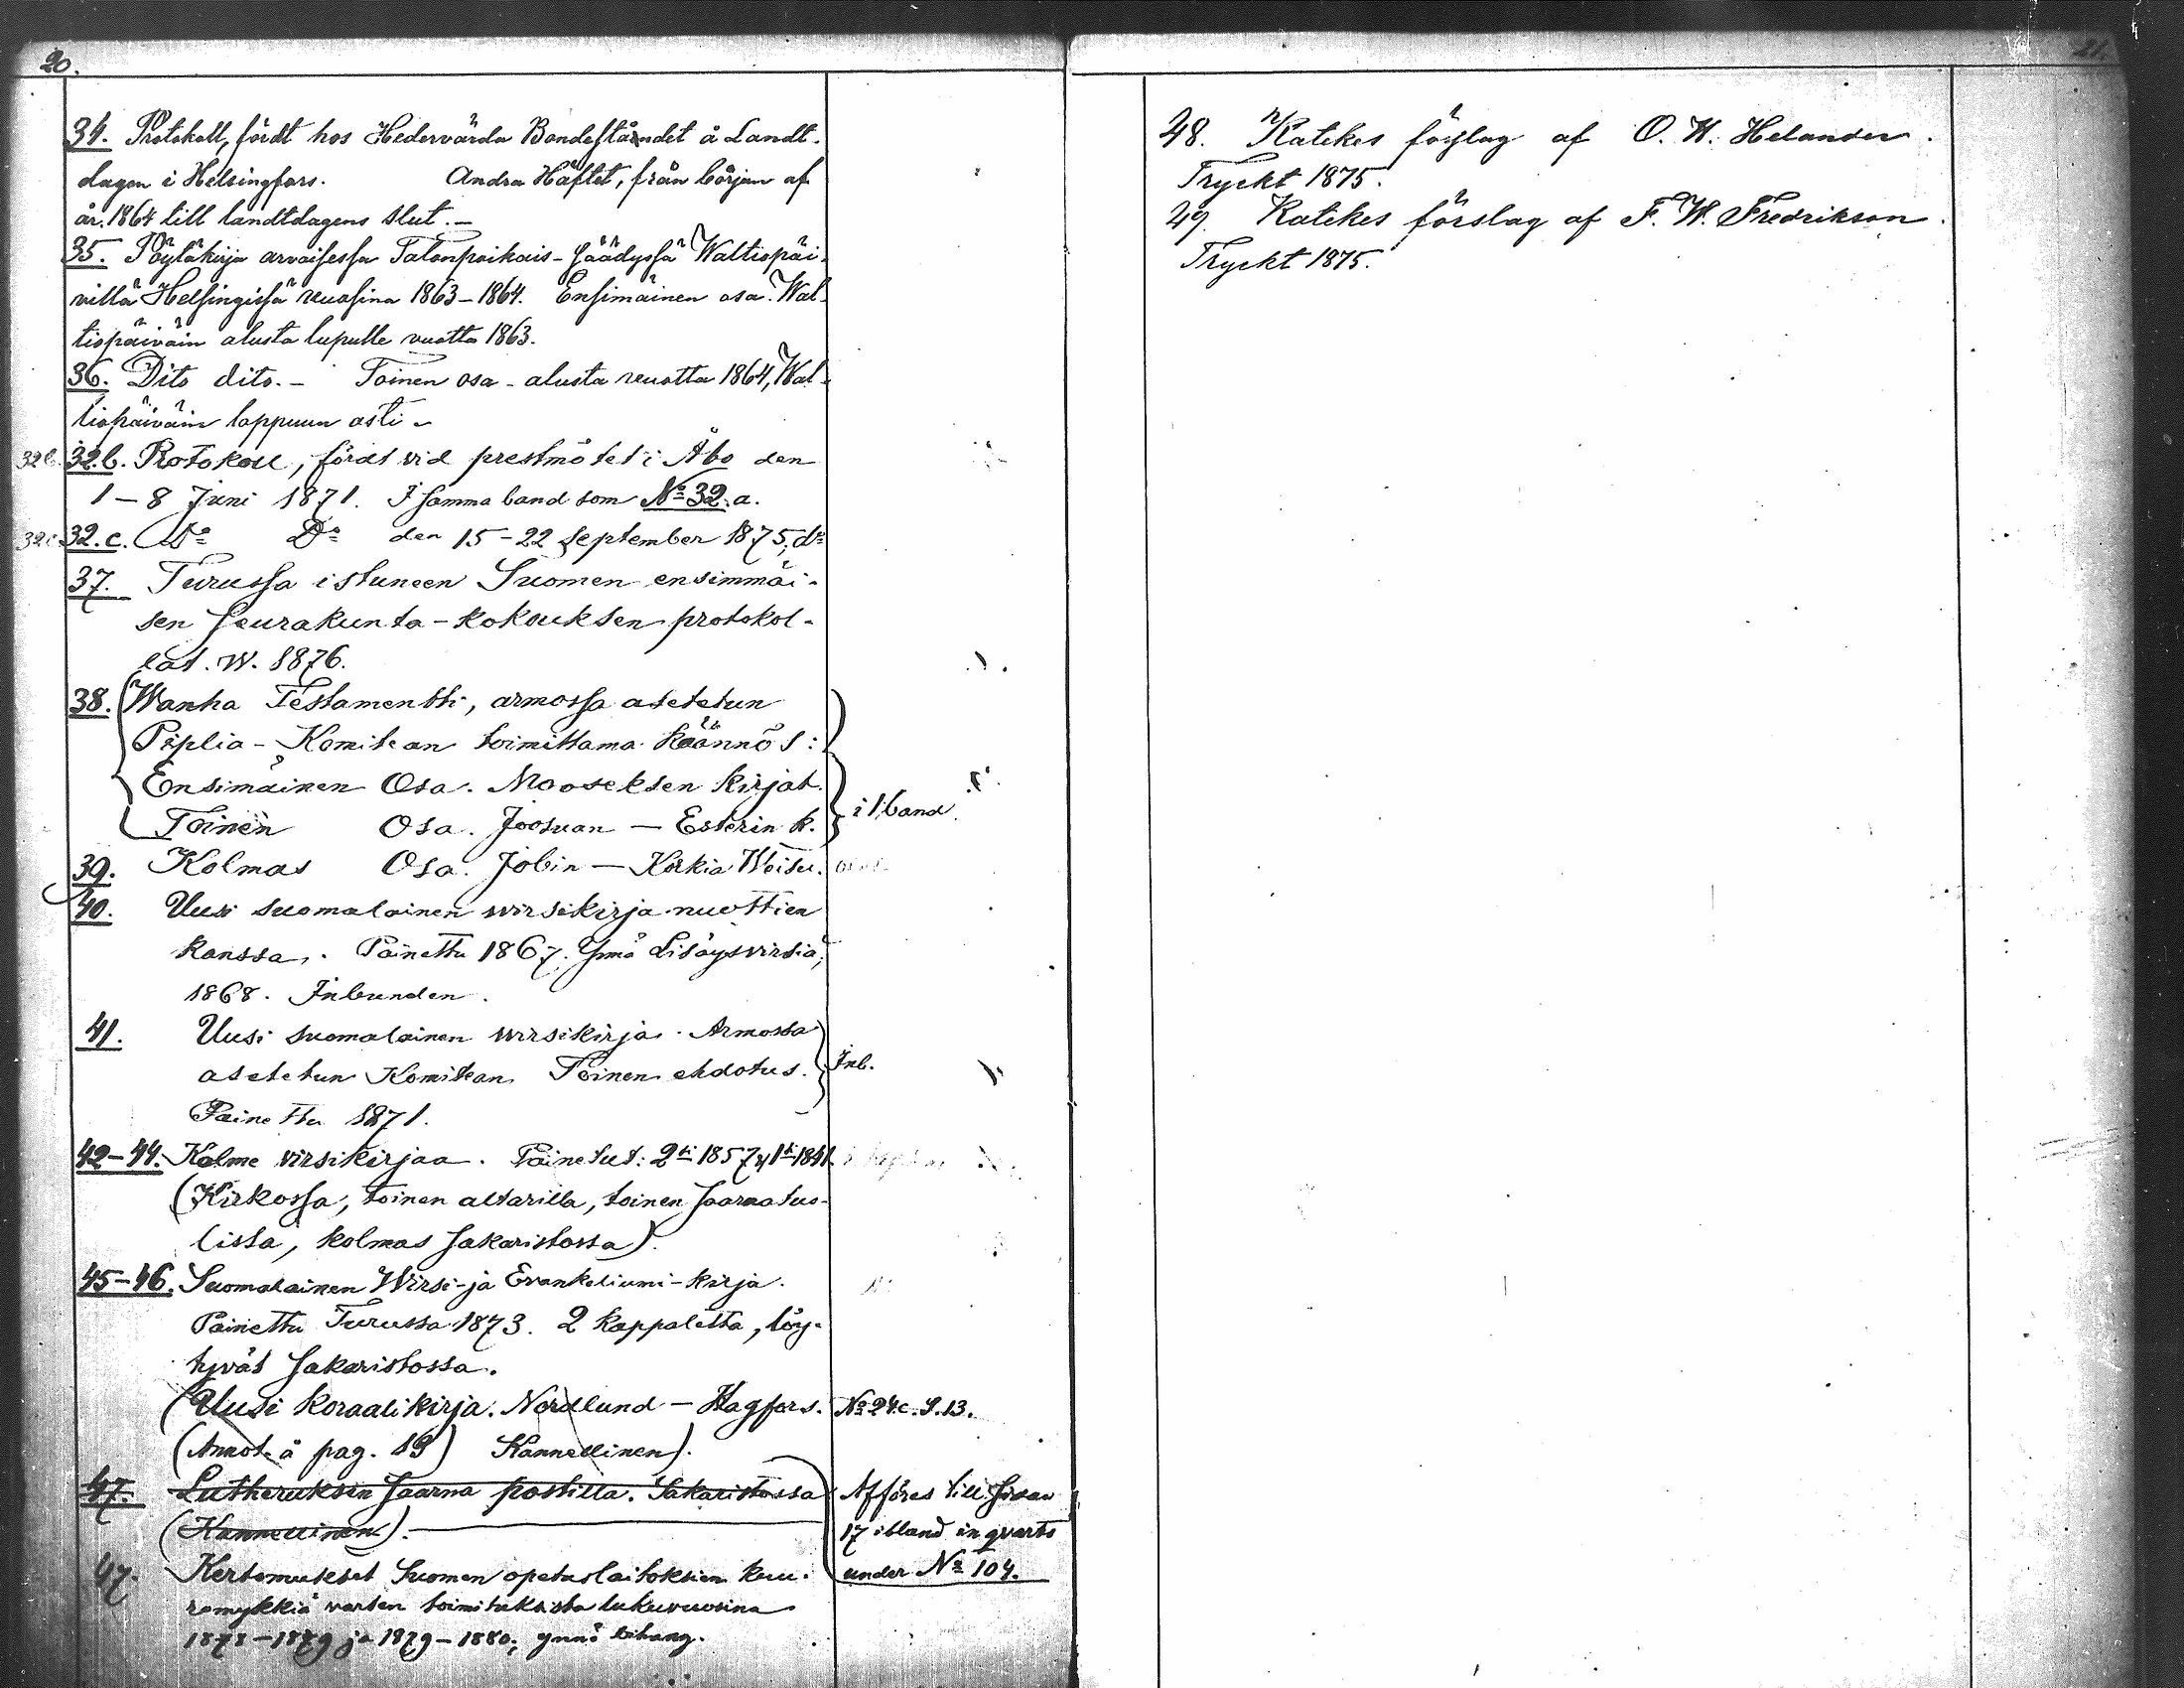 20.
34. Protokoll, fördt hos Hedervärda Bondeståndet å Landt-
dagen i Helsingfors. Andra Häftet, från början af
år 1864 till landtdagens slut. -
35. Pöytäkirja arvoisessa Talonpoikais-säädyssä Waltiopäi-
villä Helsingissä vuosina 1863-1864. Ensimäinen osa. Wal-
tiopäiväin alusta lupulle vuotta 1863.
36. Dito dito. - Toinen osa - alusta vuotta 1864, Wal-
tiopäiväin loppuun asti -
32b. 32.b. Protokoll, fördt vid prestmötet i Åbo den
1-8 Juni 1871. I samma band som No 32.a.
32c. 32.c. Do Do den 15-22 September 1875, do
37. Turussa istuneen Suomen ensimmäi-
sen seurakunta-kokouksen protokol-
lat. W. 1876.
38. Wanha Testamentti, armossa asetetun
Piplia-Komitean toimittama käännös:
Ensimäinen Osa. Mooseksen kirjat.
Toinen Osa. Joosuan — Esterin k.
i 1 band.
39. Kolmas Osa. Jobin — Korkia Weisu.
40. Uusi suomalainen wirsikirja nuottien
kanssa. Painettu 1867. Ynnä Lisäysvirsiä,
1868. Inbunden.
41. Uusi suomalainen wirsikirja. Armossa
asetetun Komitean Toinen ehdotus.
Inb.
Painettu 1871.
42-44. Kolme virsikirjaa. Painetut: 2si 1857, 1si 1841.
(Kirkossa, toinen altarilla, toinen saarnatuo-
lissa, kolmas sakaristossa).
45-46. Suomalainen Wirsi-ja Evankeliumi-kirja.
Painettu Turussa 1873. 2 kappaletta, löy-
tyvät sakaristossa.
(Uusi koraalikirja. Nordlund — Hagfors. No 24.c. S. 13.
(Annot. å pag. 13) Kannellinen).
47. Lutheruksen saarna postilla. Sakaristossa
(Kannellinen).
Afföres till sidan
17 ibland in qvarto
under No 104.
47. Kertomukset Suomen opetuslaitoksien kuu-
romykkiä varten toimituksista lukuvuosina
1878-1879 ja 1879-1880; ynnä bihang.
21.
48. Katekes förslag af O. W. Helander.
Tryckt 1875.
49. Katekes förslag af F. W. Fredrikson.
Tryckt 1875.